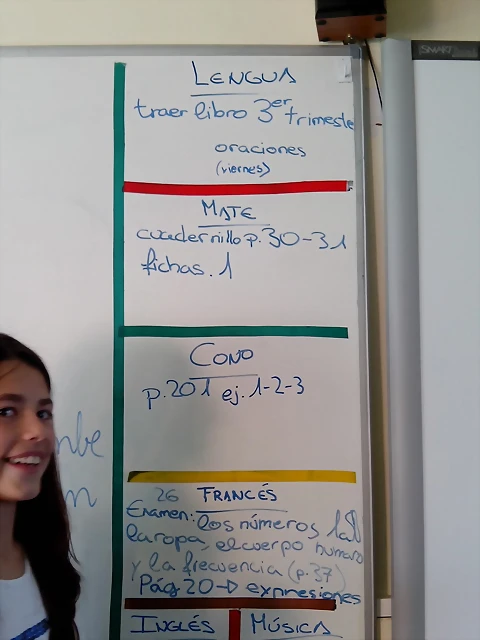 SMART
LENGUA
traer libro 3er trimestre
oraciones
(viernes)
MATE
cuadernillo p. 30-31
fichas. 1
CONO
p. 201 ej. 1-2-3
26 FRANCÉS
Examen: los números
la ropa, el cuerpo humano
y la frecuencia (p. 37)
Pág 20 → expresiones
INGLÉS
MÚSICA